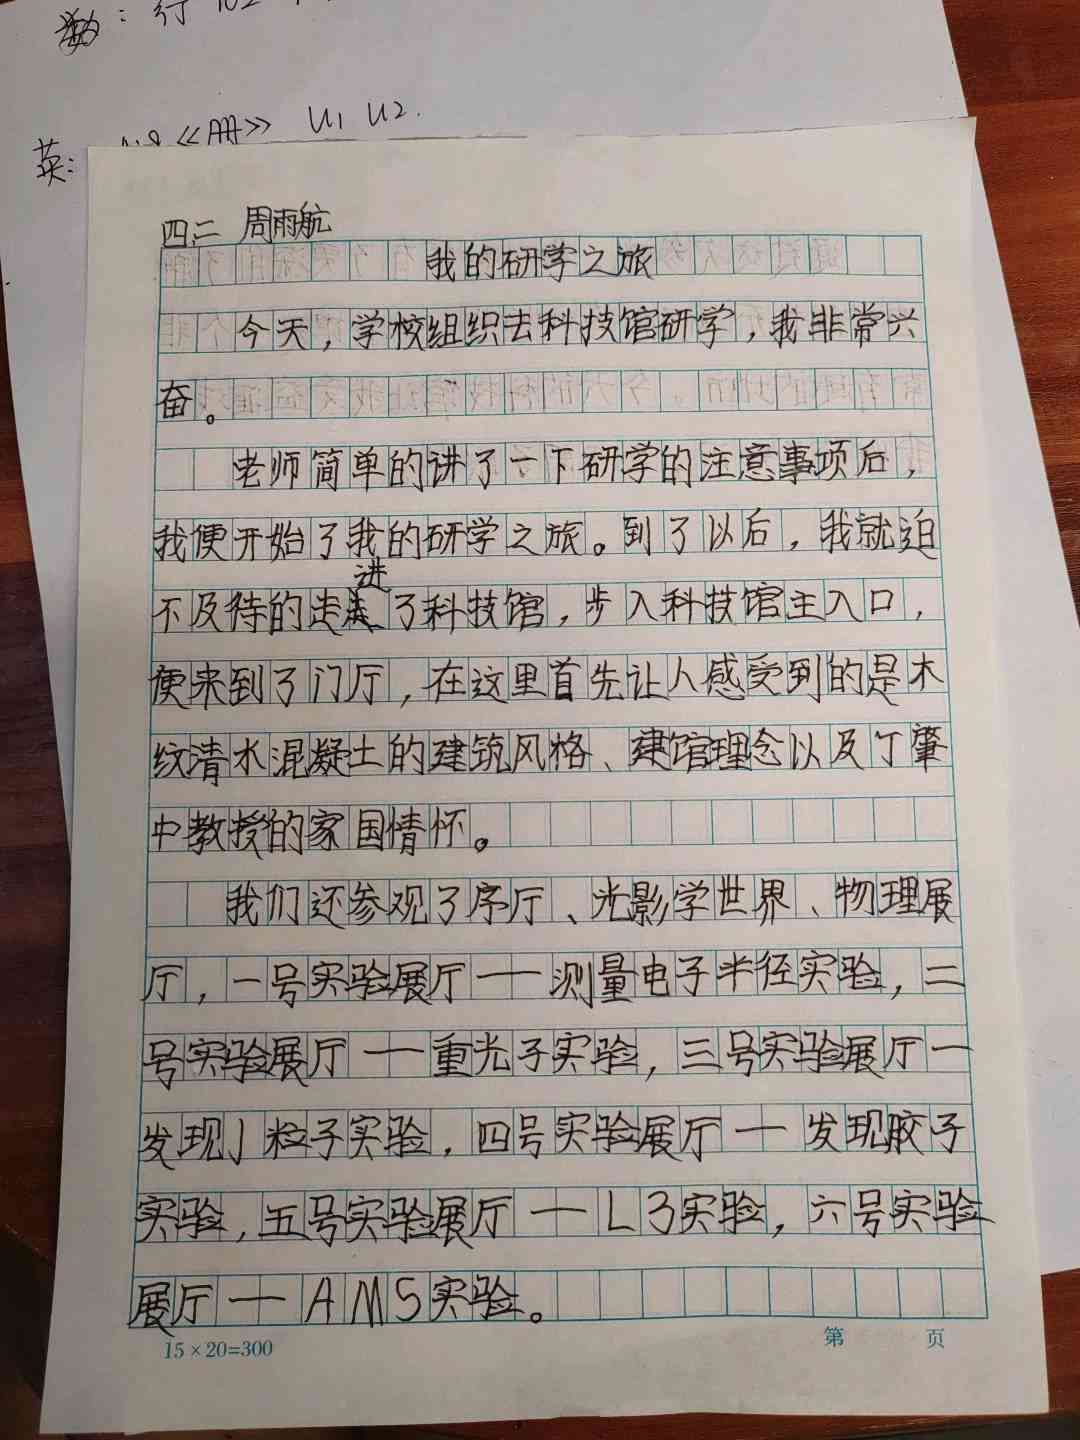 英：《册》 U1 U2.
四、二 周雨航
我的研学之旅
今天，学校组织去科技馆研学，我非常兴
奋。
老师简单的讲了一下研学的注意事项后，
我便开始了我的研学之旅。到了以后，我就迫
进
不及待的走了科技馆，步入科技馆主入口，
便来到了门厅，在这里首先让人感受到的是木
纹清水混凝土的建筑风格、建馆理念以及丁肇
中教授的家国情怀。
我们还参观了序厅、光影学世界、物理展
厅，一号实验展厅——测量电子半径实验，二
号实验展厅——重光子实验，三号实验展厅—
发现J粒子实验，四号实验展厅——发现胶子
实验，五号实验展厅——L3实验，六号实验
展厅——AMS实验。
15×20=300 第 页